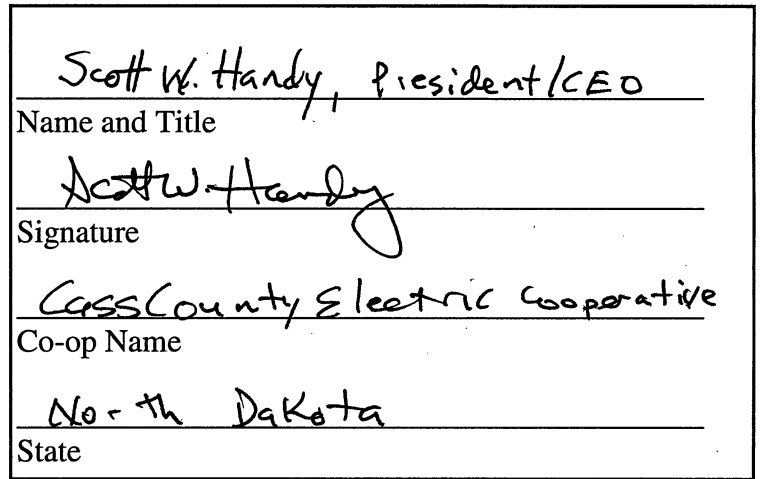 Scott W. Handy, President/CEO
Name and Title
Scott W. Handy
Signature
Cass County Electric Cooperative
Co-op Name
North Dakota
State